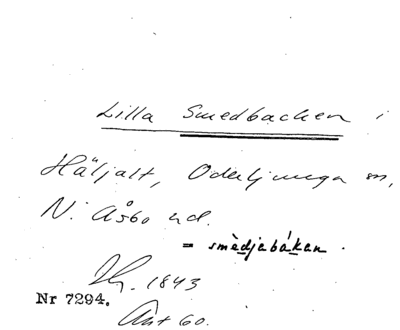 Lilla Smedbacken i
Häljalt, Oderljunga sn,
N. Åsbo hd.
= smèdjabákan.
Hg. 1843
Nr 7294.
Ant 60.